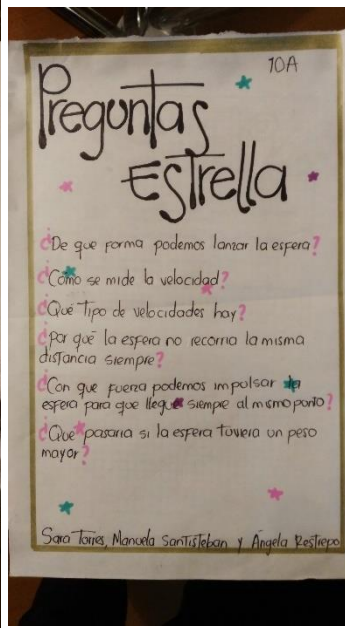 10A
Preguntas
Estrella
¿De que forma podemos lanzar la esfera?
¿Cómo se mide la velocidad?
¿Qué tipo de velocidades hay?
¿Por qué la esfera no recorria la misma
distancia siempre?
¿Con que fuerza podemos impulsar la
esfera para que llegue siempre al mismo punto?
¿Que pasaria si la esfera tuviera un peso
mayor?
Sara Torres, Manuela Santisteban y Ángela Restrepo